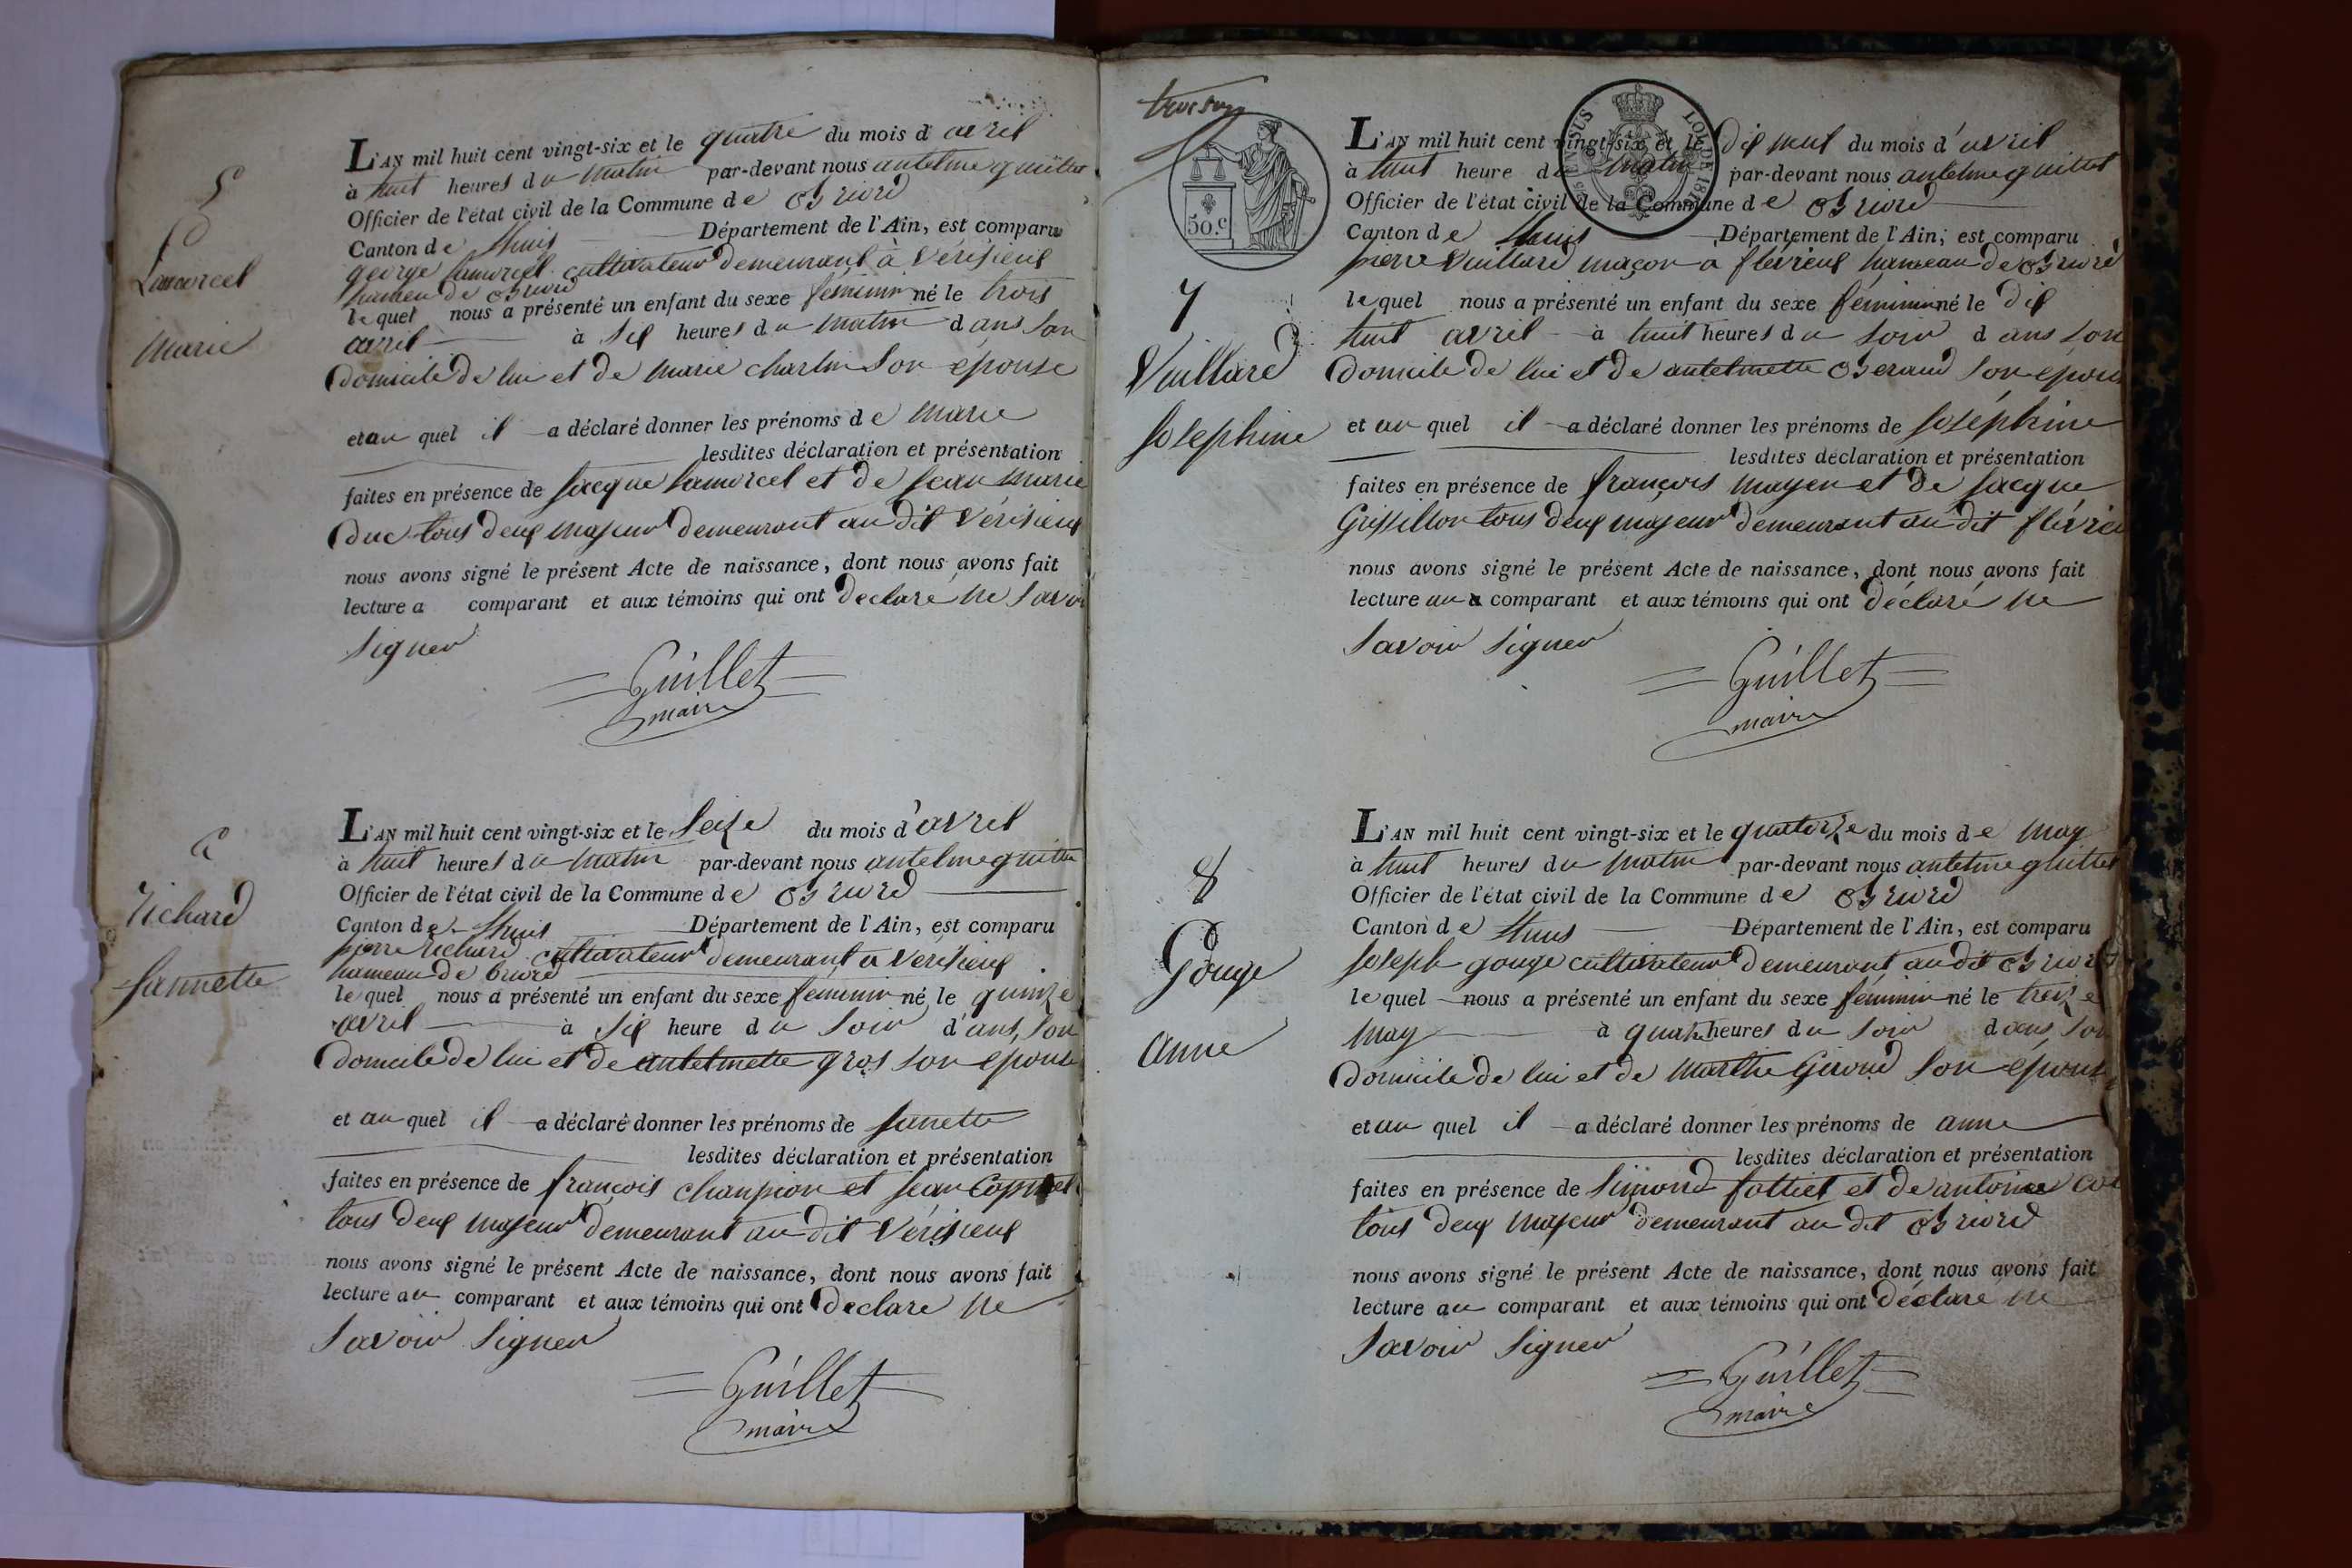 5
Lamorcel
Marie
L'AN mil huit cent vingt-six et le quatre du mois d avril
à huit heures du matin par-devant nous antelme guillet
Officier de l'état civil de la Commune de
Canton de lhuis Département de l'Ain, est comparu
george lamorcel cultivateur demeurant à vérisieux
hameau de
lequel nous a présenté un enfant du sexe féminin né le trois
avril à six heures du matin dans son
domicile de lui et de marie charlin son épouse
et au quel il a déclaré donner les prénoms de marie
lesdites déclaration et présentation
faites en présence de jacque lamorcel et de jean marie
duc tous deux majeur demeurant au dit vérisieux
nous avons signé le présent Acte de naissance, dont nous avons fait
lecture a comparant et aux témoins qui ont declaré ne savoir
signer
Guillet
maire
6
Richard
Jannette
L'AN mil huit cent vingt-six et le seize du mois d'avril
à huit heures du matin par-devant nous antelme guillet
Officier de l'état civil de la Commune de
Canton de lhuis Département de l'Ain, est comparu
pierre richard cultivateur demeurant a vérisieux
hameau de briord
lequel nous a présenté un enfant du sexe féminin né le quinze
avril à six heure du soir d'ans son
domicile de lui et de antelmette gros son épouse
et au quel il a déclaré donner les prénoms de janette
lesdites déclaration et présentation
faites en présence de françois champion et jean
tous deux majeur demeurant au dit vérisieux
nous avons signé le présent Acte de naissance, dont nous avons fait
lecture au comparant et aux témoins qui ont déclare ne
savoir signer
Guillet
maire
50.c
LOI DE
7
Vuillard
Josephine
L'AN mil huit cent vingt-six et le dix neuf du mois d'avril
à huit heure du matin par-devant nous antelme guillet
Officier de l'état civil de la Commune de
Canton de lhuis Département de l'Ain, est comparu
pierre vuillard maçon a flévieux hameau de
lequel nous a présenté un enfant du sexe féminin né le dix
huit avril à huit heures du soir dans son
domicile de lui et de antelmette son épouse
et au quel il a déclaré donner les prénoms de joséphine
lesdites déclaration et présentation
faites en présence de françois mayen et de jacque
Grissillon tous deux majeur demeurant au dit
nous avons signé le présent Acte de naissance, dont nous avons fait
lecture au comparant et aux témoins qui ont déclaré ne
savoir signer
Guillet
maire
8
Gouge
anne
L'AN mil huit cent vingt-six et le quatorze du mois de may
à huit heures du matin par-devant nous antelme guillet
Officier de l'état civil de la Commune de
Canton de lhuis Département de l'Ain, est comparu
joseph gouge cultivateur demeurant au dit
lequel nous a présenté un enfant du sexe féminin né le treize
may à quatre heures du soir dans son
domicile de lui et de marthe Giroud son épouse
et au quel il a déclaré donner les prénoms de anne
lesdites déclaration et présentation
faites en présence de simond et de antoine
tous deux majeur demeurant au dit
nous avons signé le présent Acte de naissance, dont nous avons fait
lecture au comparant et aux témoins qui ont déclaré ne
savoir signer
Guillet
maire